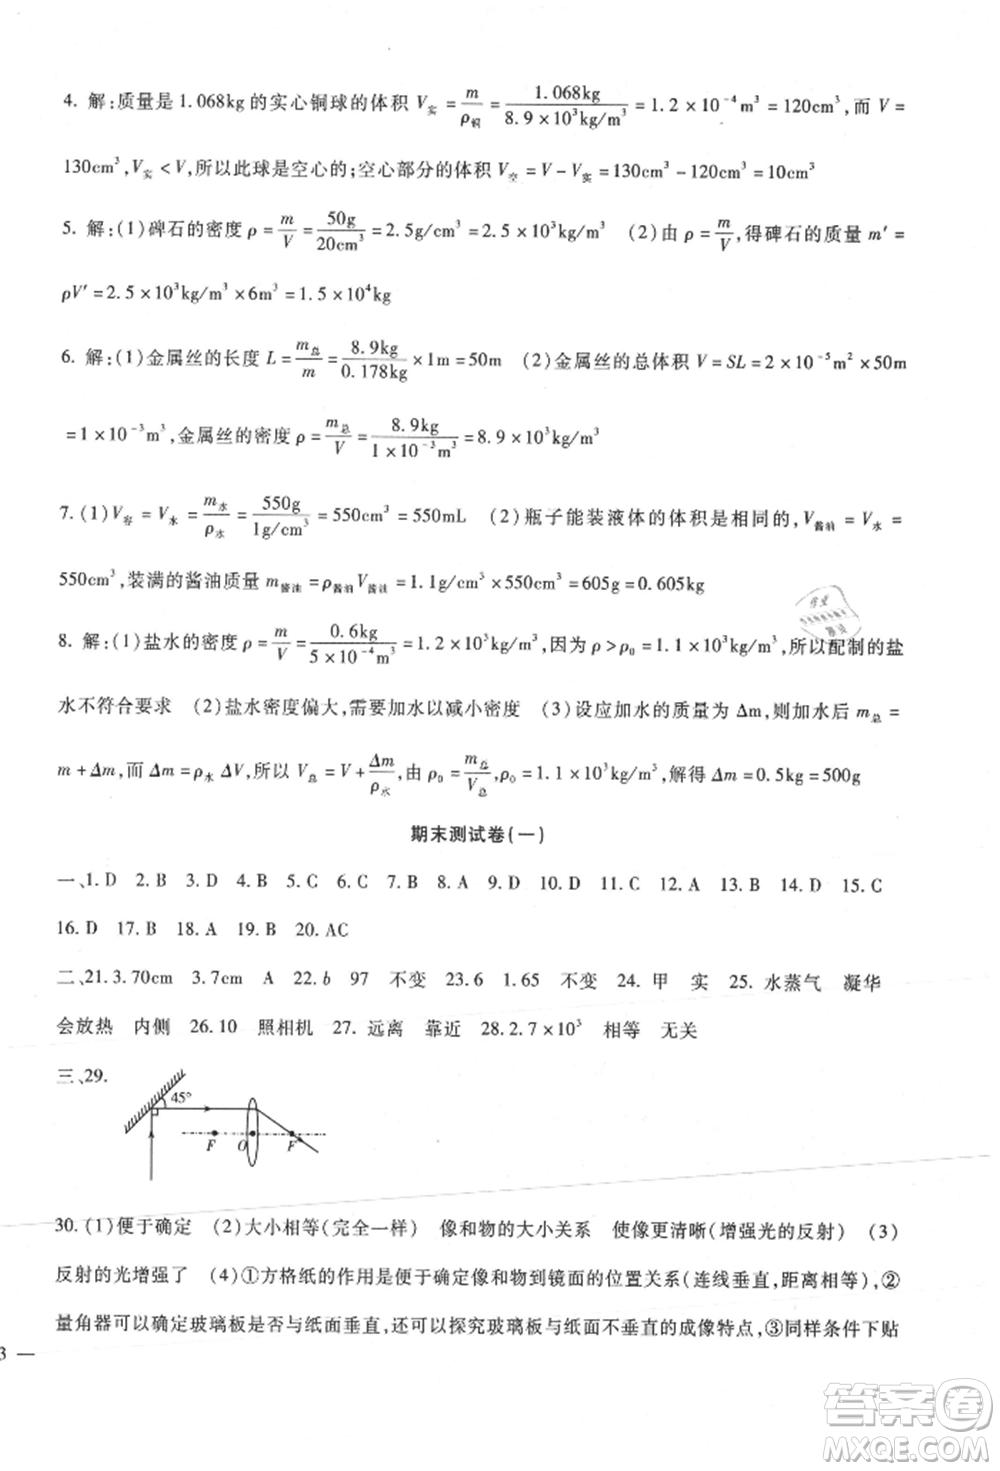 4. 解:质量是1.068kg的实心铜球的体积 V实 = m/ρ铜 = 1.068kg/8.9×10³kg/m³ = 1.2×10⁻⁴m³ = 120cm³,而 V =
130cm³,V实 < V,所以此球是空心的;空心部分的体积 V空 = V − V实 = 130cm³ − 120cm³ = 10cm³
5. 解:(1)碑石的密度 ρ = m/V = 50g/20cm³ = 2.5g/cm³ = 2.5×10³kg/m³ (2)由 ρ = m/V,得碑石的质量 m′ =
ρV′ = 2.5×10³kg/m³×6m³ = 1.5×10⁴kg
6. 解:(1)金属丝的长度 L = m总/m = 8.9kg/0.178kg ×1m = 50m (2)金属丝的总体积 V = SL = 2×10⁻⁵m²×50m
= 1×10⁻³m³,金属丝的密度 ρ = m总/V = 8.9kg/1×10⁻³m³ = 8.9×10³kg/m³
7. (1)V容 = V水 = m水/ρ水 = 550g/1g/cm³ = 550cm³ = 550mL (2)瓶子能装液体的体积是相同的,V酱油 = V水 =
550cm³,装满的酱油质量 m酱油 = ρ酱油V酱油 = 1.1g/cm³×550cm³ = 605g = 0.605kg
8. 解:(1)盐水的密度 ρ = m/V = 0.6kg/5×10⁻⁴m³ = 1.2×10³kg/m³,因为 ρ > ρ₀ = 1.1×10³kg/m³,所以配制的盐
水不符合要求 (2)盐水密度偏大,需要加水以减小密度 (3)设应加水的质量为 Δm,则加水后 m总 =
m + Δm,而 Δm = ρ水 ΔV,所以 V总 = V + Δm/ρ水,由 ρ₀ = m总/V总,ρ₀ = 1.1×10³kg/m³,解得 Δm = 0.5kg = 500g
期末测试卷(一)
一、1. D 2. B 3. D 4. B 5. C 6. C 7. B 8. D 9. D 10. D 11. C 12. A 13. B 14. D 15. C
16. D 17. B 18. A 19. B 20. AC
二、21. 3.70cm 3.7cm A 22. b 97 不变 23. 6.1 1.65 不变 24. 甲 实 25. 水蒸气 凝华
会放热 内侧 26. 10 照相机 27. 远离 靠近 28. 2.7×10³ 相等 无关
三、29.
45°
F O F
30. (1)便于确定 (2)大小相等(完全一样) 像和物的大小关系 使像更清晰(增强光的反射) (3)
反射的光增强了 (4)①方格纸的作用是便于确定像和物到镜面的位置关系(连线垂直,距离相等),②
量角器可以确定玻璃板是否与纸面垂直,还可以探究玻璃板与纸面不垂直的成像特点,③同样条件下贴
3 —
答案圈
MXQE.COM